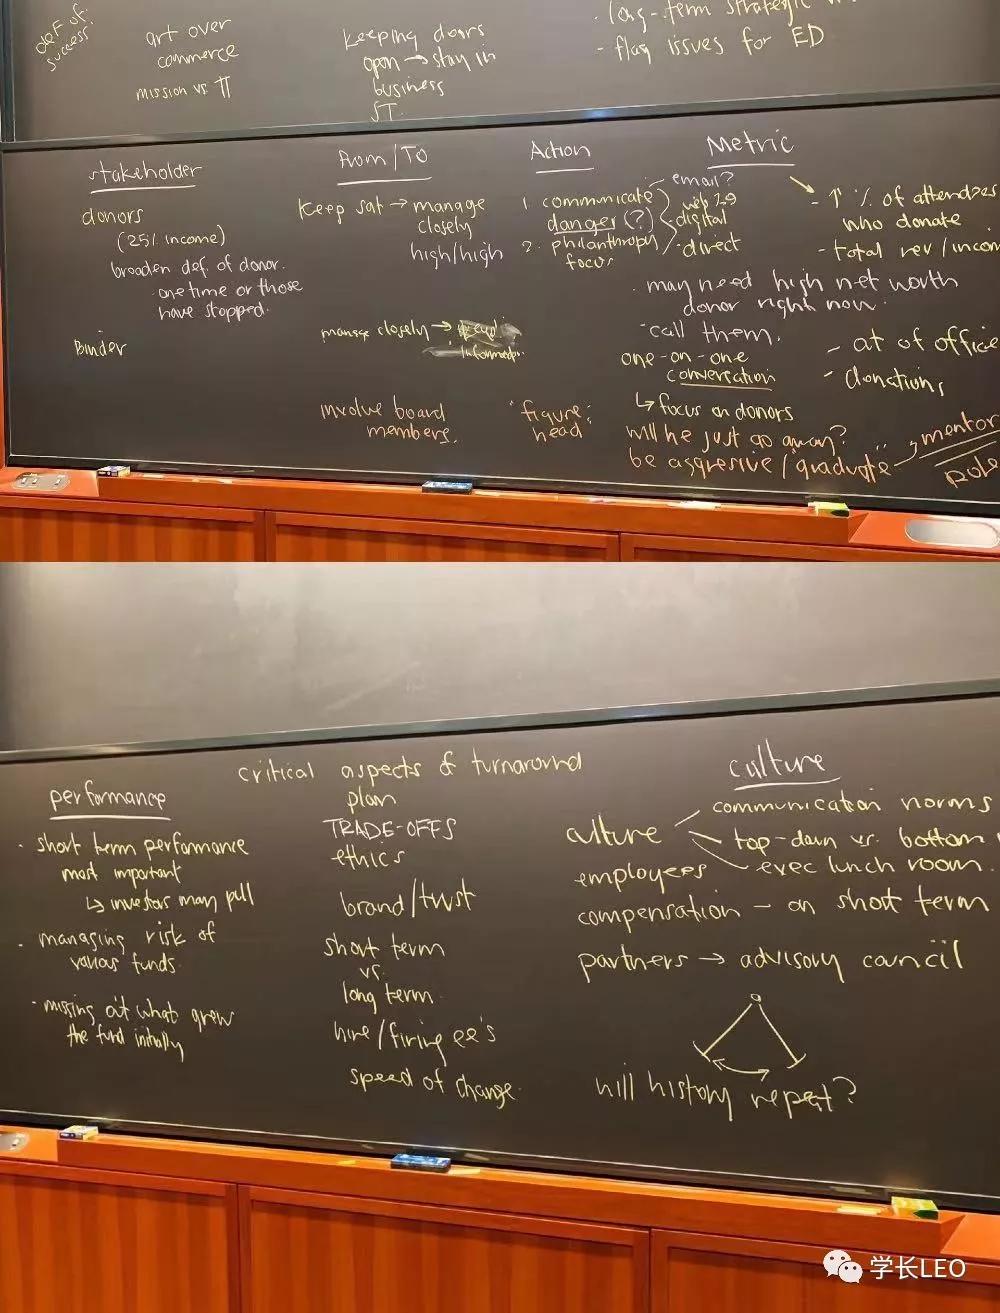 def of.
success
art over
commerce
mission vs. π
keeping doors
open → stay in
business
ST.
· long-term strategic
- flag issues for ED
stakeholder
donors
(25% income)
broaden def. of donor.
· onetime or those
have stopped.
Binder
From/To
keep sat → manage
closely
high/high
manage closely →
information
involve board
members.
Action
1. communicate
danger (?)
2. philanthropy
focus
"figure
head
Metric
email?
web 2.0
digital
direct
- ↑ % of attendees
who donate
- total rev/incom
· may need high net worth
donor right now.
· call them.
one-on-one
conversation
↳ focus on donors
will he just go away?
be aggresive / graduate
- at of office
- donations
mentor
role
performance
· short term performance
most important
↳ investors may pull
· managing risk of
various funds.
· missing at what grew
the fund initially
critical aspects of turnaround
plan
TRADE-OFFS
ethics
brand/trust
short term
vs.
long term
hire/firing ee's
speed of change.
culture
culture
communication norms
top-down vs. bottom
exec lunch room.
employees
compensation - on short term
partners → advisory council
will history repeat?
学长LEO